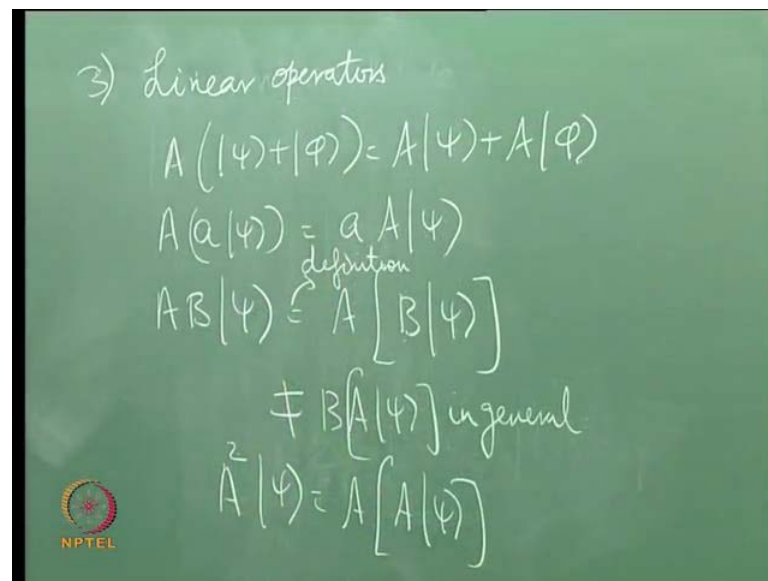 3) Linear operators
A(|ψ⟩+|φ⟩)= A|ψ⟩+A|φ⟩
A(a|ψ⟩) = a A|ψ⟩
definition
AB|ψ⟩ = A[B|ψ⟩]
≠ B[A|ψ⟩] in general
A²|ψ⟩ = A[A|ψ⟩]
NPTEL